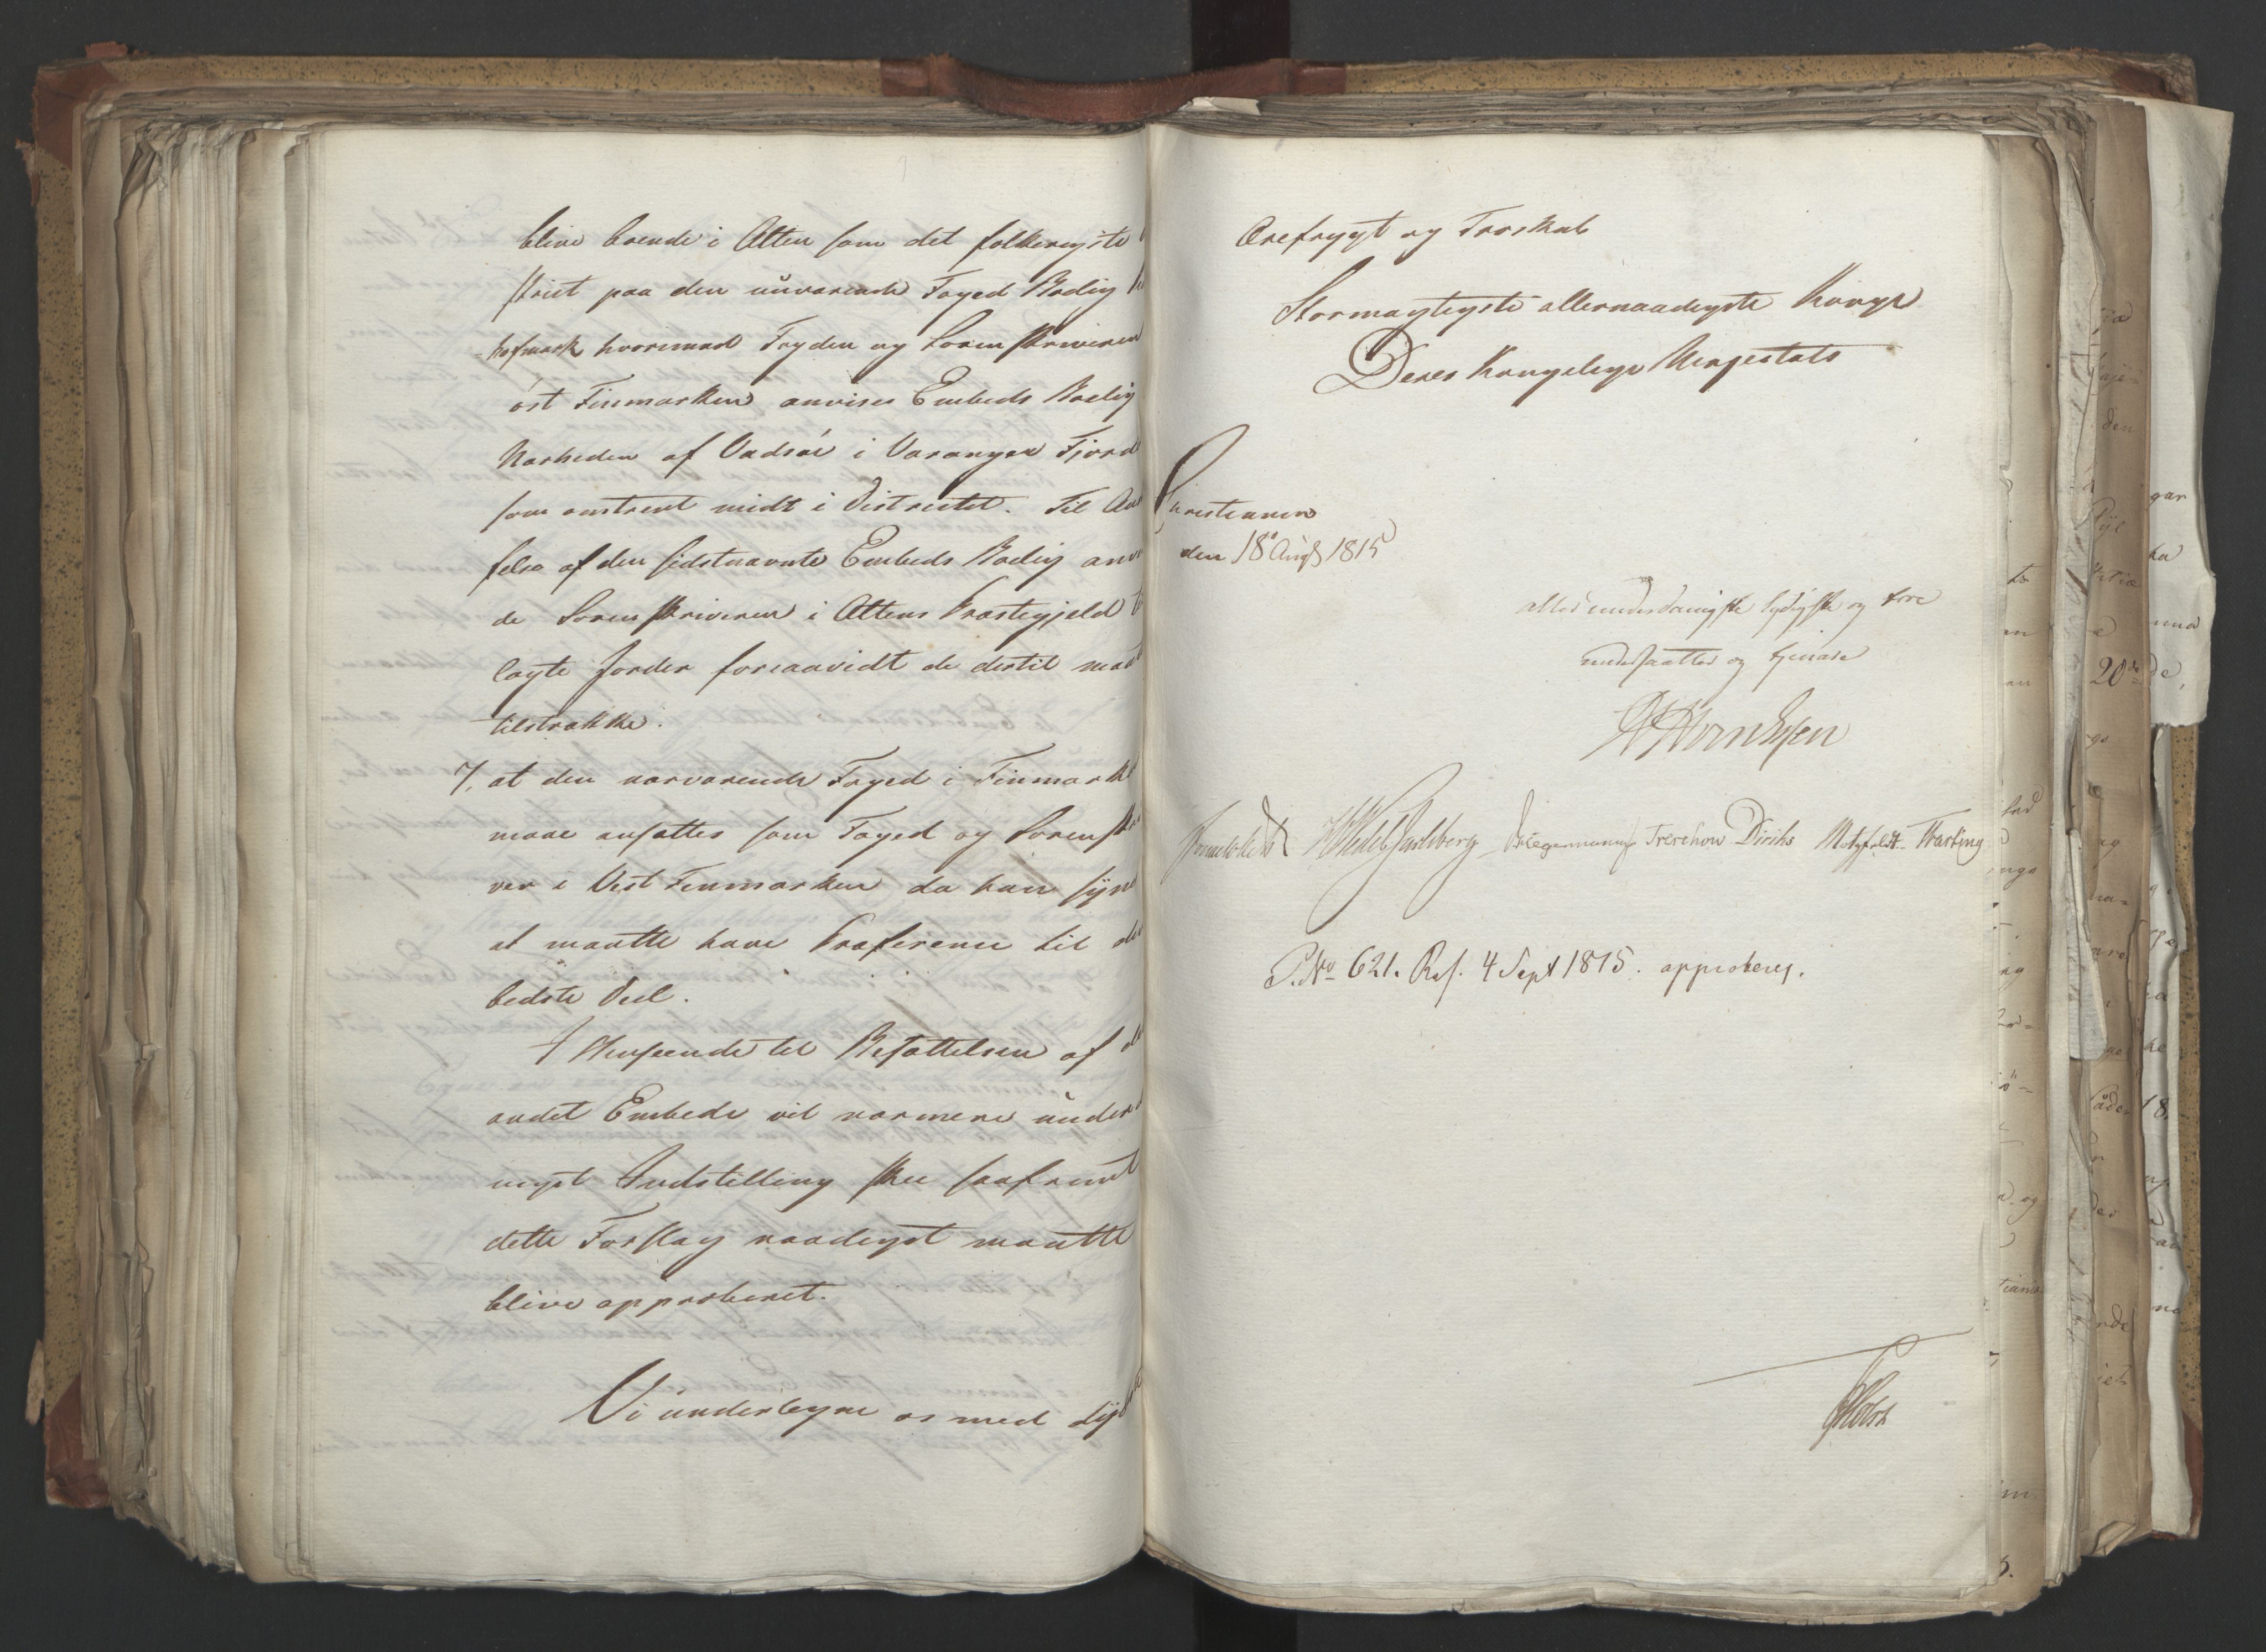 blive boende i Alten som det folkerigste
strict paa den nuværende Foged Bolig
hvorimod Fogden og Sorenskriveren
öst Finmarken anvises Embeds Bolig
Nærheden af Vadsöe i Varanger Fjord
som omtrent midt i Districtet. Til An
felse af den sidstnævnte Embeds Bolig anv
de Sorenskriveren i Altens Præstegjeld
lagte Jorder forsaavidt de dertil maat
tilstrække.
7, at den nærværende Foged i Finmark
maae ansættes som Foged og Sorenskri
ver i Vest Finmarken da han syne
at maatte have Præference til det
bedste Deel.
I Henseende til Besættelsen af
andet Embede vil nærmere under
nigst Indstilling skee saafremt
dette Forslag naadigst maatte
blive approberet.
Vi underlegne os med dyb
Ærefrygt og Troskab
Stormægtigste allernaadigste Konge
Deres Kongelige Majestæts
Christiania
den 18de Augs 1815
allerunderdanigste lydigste og troe
undersaatter og tjenere
Sommerhielm HWedel Jarlberg Krieger Treschow Diriks Motzfeldt
P. No 621. Res. 4 Sept 1815. approberes.
Holst